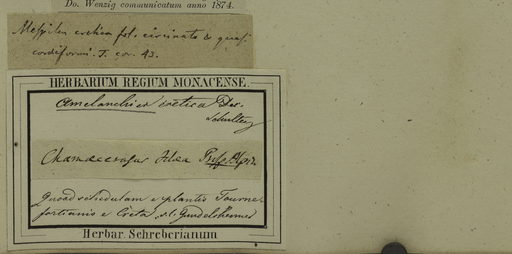 Do. Wenzig communicatum anno 1874.
Mespilus cretica fol. circinato & quasi
cordiformi. T. cor. 43.
HERBARIUM REGIUM MONACENSE.
Amelanchier cretica Dec.
Chamaecerasus Idea
Quoad schedulam e plantis Tourne-
fortianis e Creta s. l. Gundelsheimer
Herbar. Schreberianum